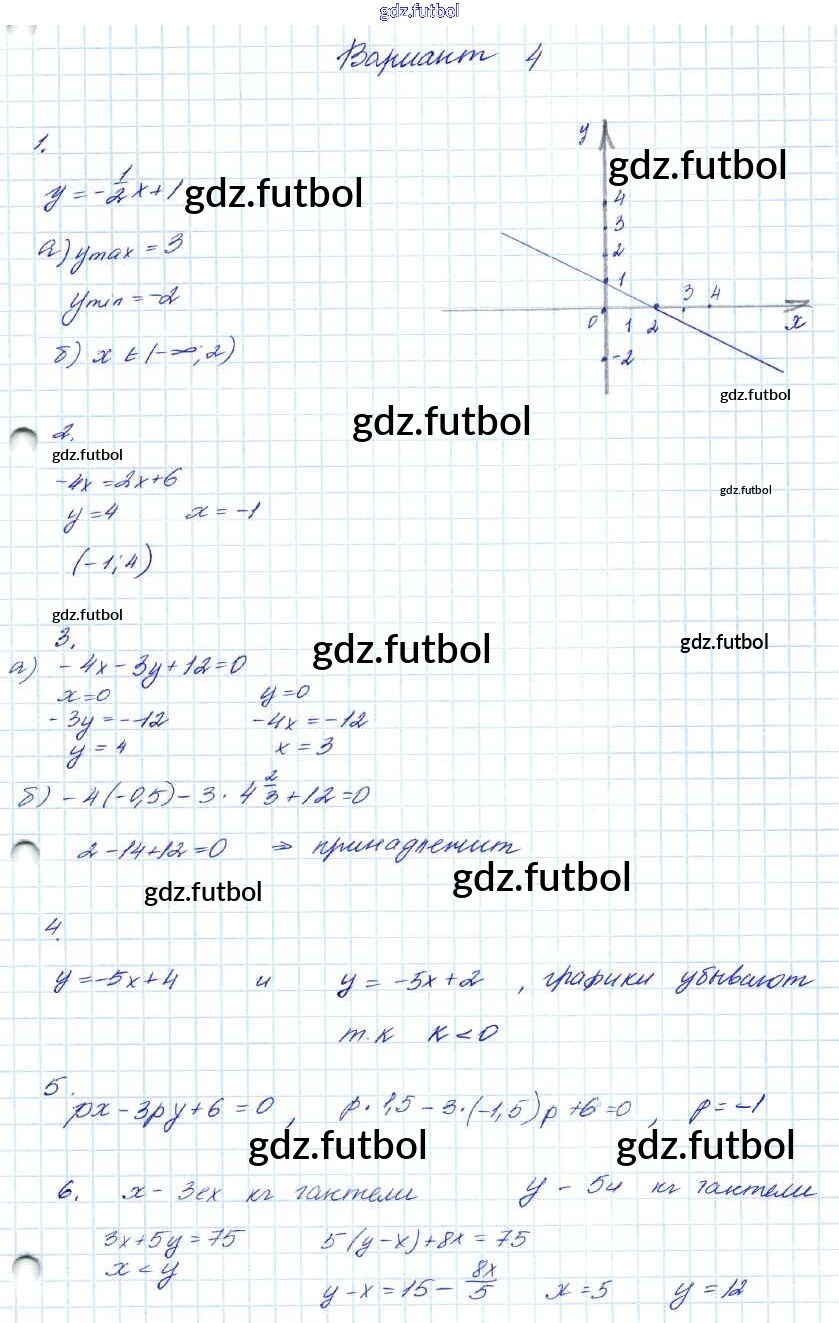 gdz.futbol
Вариант 4
1.
y = -1/2x+1 gdz.futbol
gdz.futbol
а) ymax = 3
ymin = -2
б) x ∈ (-∞; 2)
y
4
3
2
1
3 4
0 1 2 x
-2
gdz.futbol
gdz.futbol
2.
gdz.futbol
-4x = 2x+6
gdz.futbol
y = 4 x = -1
(-1; 4)
gdz.futbol
3.
gdz.futbol
gdz.futbol
а) -4x-3y+12=0
x=0 y=0
-3y = -12 -4x = -12
y = 4 x = 3
б) -4(-0,5)-3·4 2/3+12=0
2-14+12=0 ⇒ принадлежит
gdz.futbol
gdz.futbol
4.
y = -5x+4 и y = -5x+2 , графики убывают
т.к k<0
5.
px-3py+6=0, p·1,5-3·(-1,5)p+6=0, p=-1
gdz.futbol gdz.futbol
6. x - 3ех кг гантели y - 5и кг гантели
3x+5y=75 5(y-x)+8x=75
x<y
y-x=15-8x/5 x=5 y=12